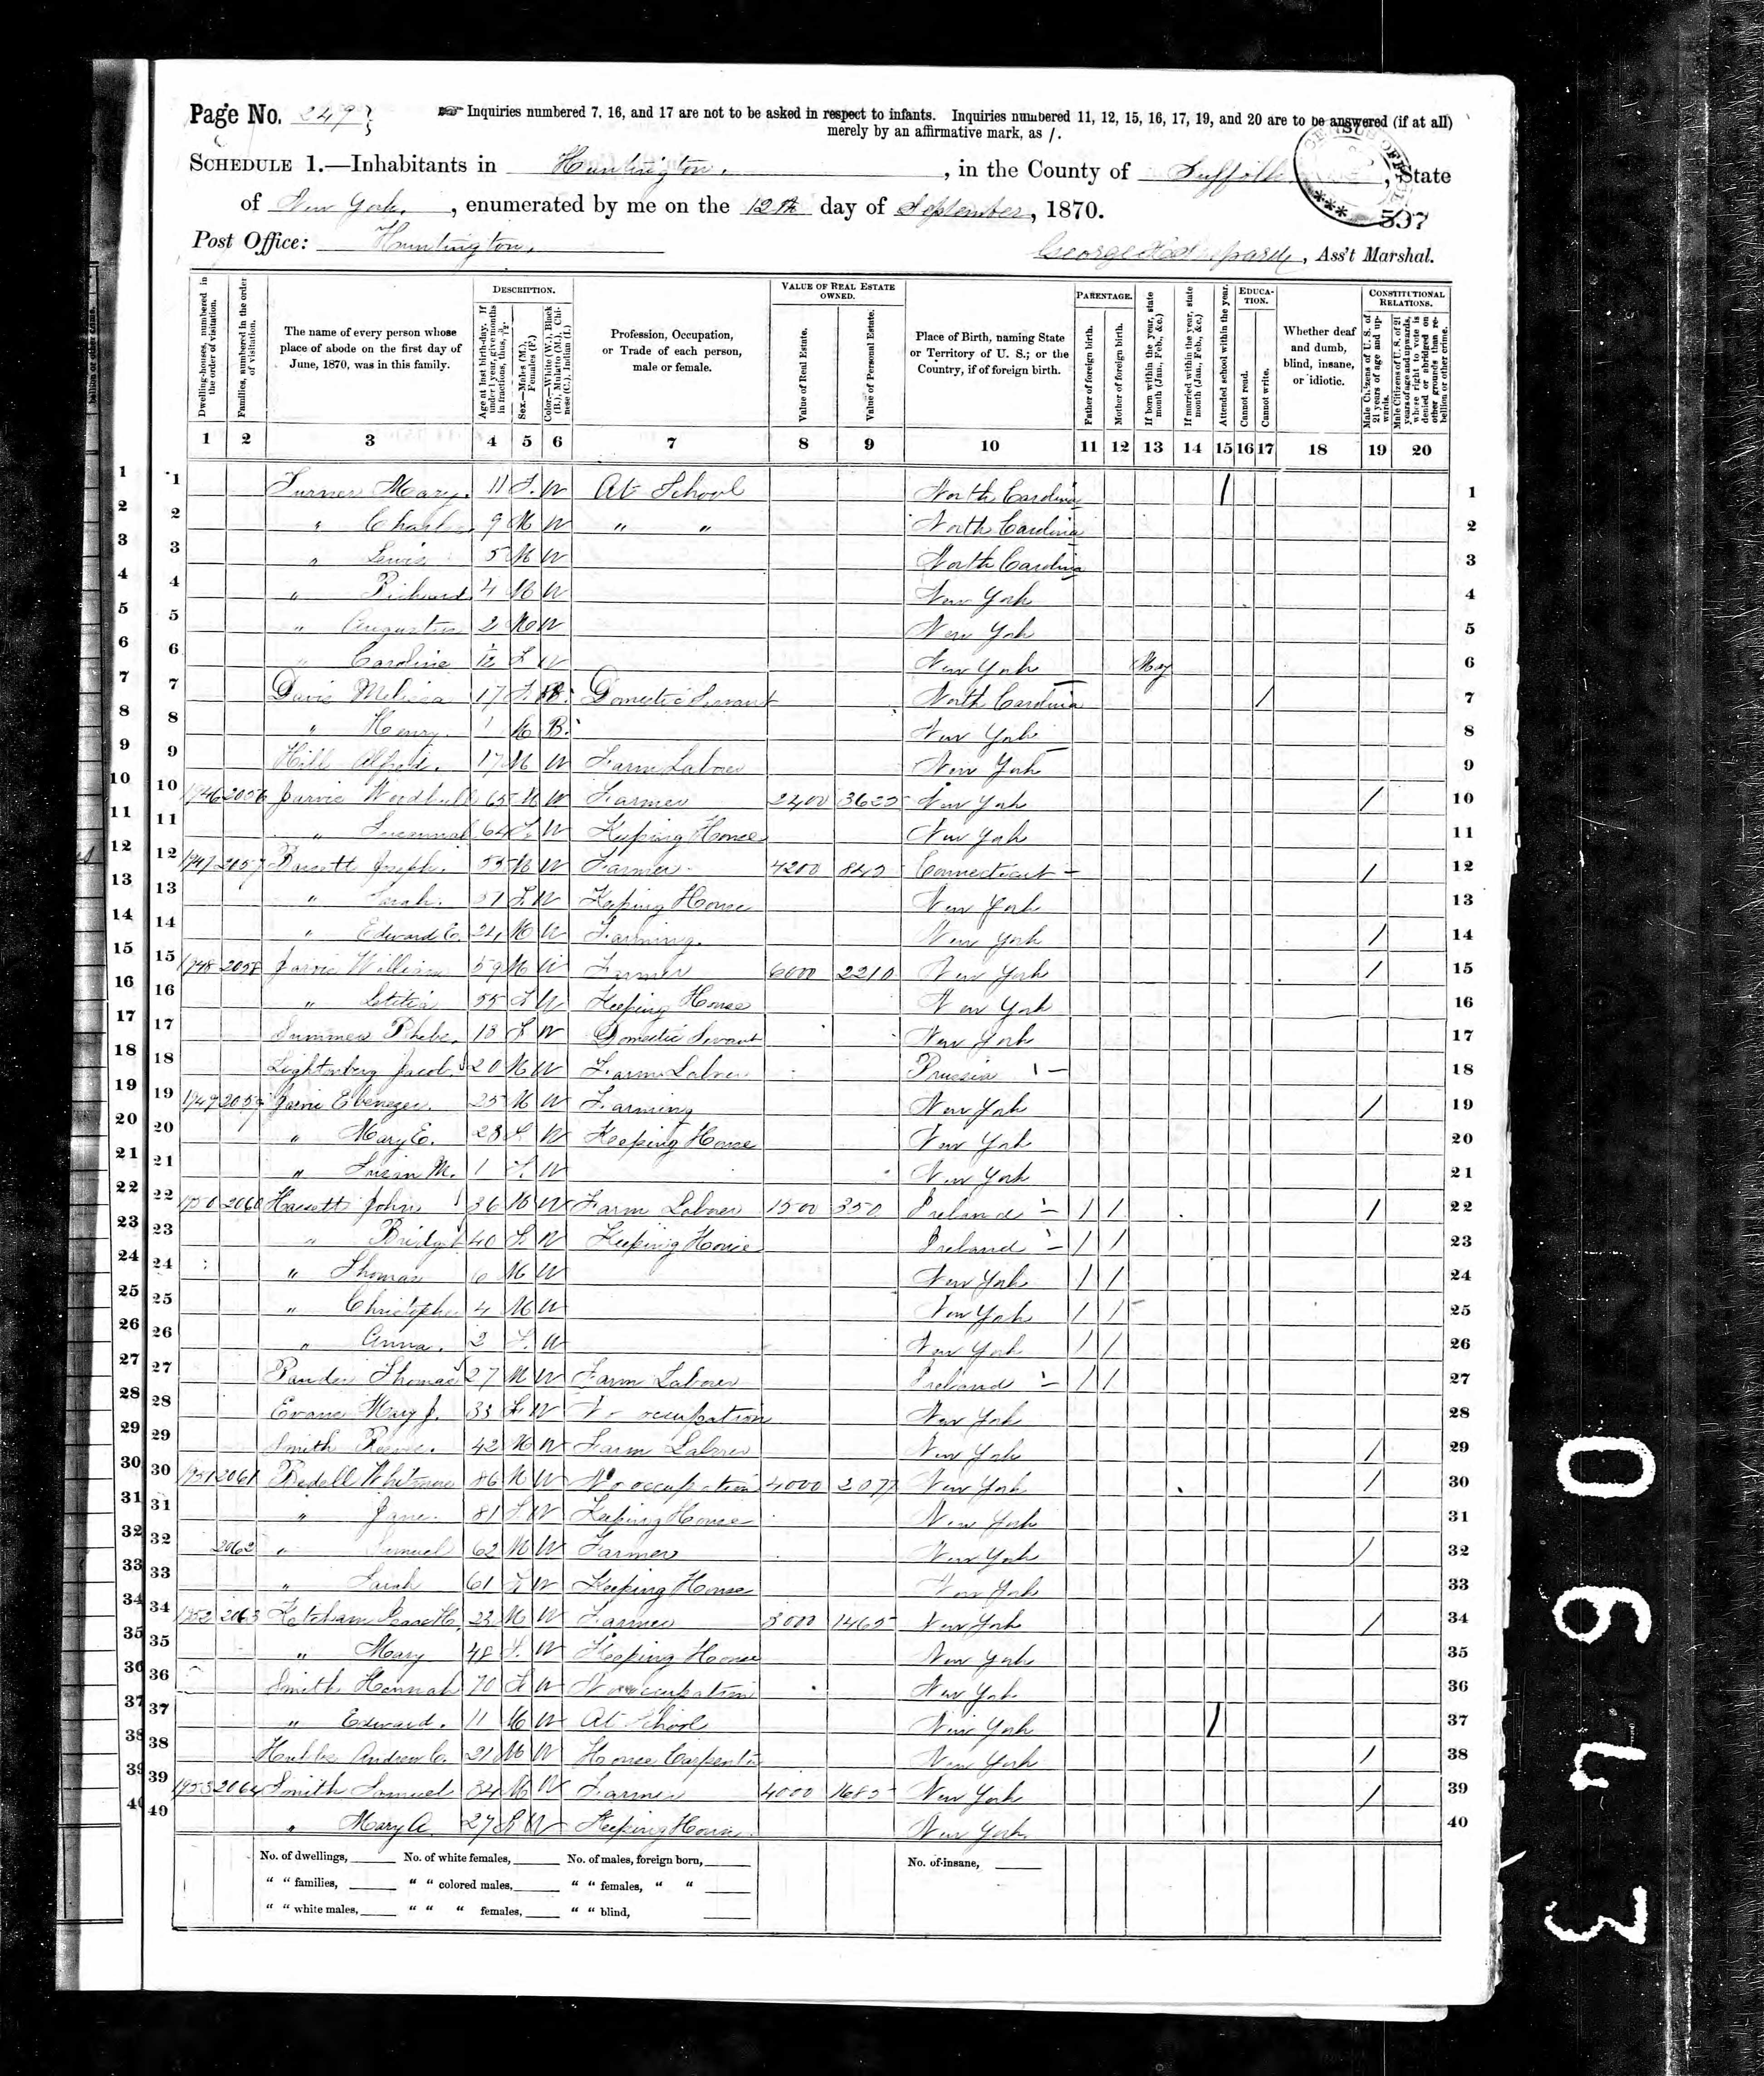 Page No. 249
Inquiries numbered 7, 16, and 17 are not to be asked in respect to infants. Inquiries numbered 11, 12, 15, 16, 17, 19, and 20 are to be answered (if at all)
merely by an affirmative mark, as /.
SCHEDULE 1.—Inhabitants in Huntington, , in the County of Suffolk, State
of New York, , enumerated by me on the 12th day of September, 1870.
597
Post Office: Huntington,
George , Ass't Marshal.
Dwelling-houses, numbered in the order of visitation.
Families, numbered in the order of visitation.
The name of every person whose place of abode on the first day of June, 1870, was in this family.
DESCRIPTION.
Age at last birth-day. If under 1 year, give months in fractions, thus, 3/12.
Sex.—Males (M.), Females (F.)
Color.—White (W.), Black (B.), Mulatto (M.), Chinese (C.), Indian (I.)
Profession, Occupation, or Trade of each person, male or female.
VALUE OF REAL ESTATE OWNED.
Value of Real Estate.
Value of Personal Estate.
Place of Birth, naming State or Territory of U. S.; or the Country, if of foreign birth.
PARENTAGE.
Father of foreign birth.
Mother of foreign birth.
If born within the year, state month (Jan., Feb., &c.)
If married within the year, state month (Jan., Feb., &c.)
Attended school within the year.
EDUCATION.
Cannot read.
Cannot write.
Whether deaf and dumb, blind, insane, or idiotic.
CONSTITUTIONAL RELATIONS.
Male Citizens of U. S. of 21 years of age and upwards.
Male Citizens of U. S. of 21 years of age and upwards, whose right to vote is denied or abridged on other grounds than rebellion or other crime.
1 2 3 4 5 6 7 8 9 10 11 12 13 14 15 16 17 18 19 20
1 Turner Mary. 11 F. W At School North Carolina / 1
2 " Charles 9 M W " " North Carolina 2
3 " Lewis 5 M W North Carolina 3
4 " Richard 4 M W New York 4
5 " Augustus 2 M W New York 5
6 " Caroline 1/12 F W New York May 6
7 Davis Melissa 17 F. B. Domestic Servant North Carolina / 7
8 " Henry. 1 M B. New York 8
9 Hill Alfred. 17 M W Farm Laborer New York 9
10 1946 2056 Jarvis Woodhull 65 M W Farmer 2400 3625 New York / 10
11 " Susannah 64 F. W Keeping House New York 11
12 1947 2057 Bassett Joseph. 55 M W Farmer 4200 845 Connecticut / 12
13 " Sarah. 51 F. W Keeping House New York 13
14 " Edward C. 24 M W Farming. New York / 14
15 1948 2058 Jarvis William 59 M W Farmer 6000 2210 New York / 15
16 " Letitia 55 F W Keeping House New York 16
17 Phebe. 18 F W Domestic Servant New York 17
18 Jacob 20 M W Farm Laborer Prussia 18
19 1949 2059 Jarvis Ebenezer. 25 M W Farming New York / 19
20 " Mary E. 23 F. W Keeping House New York 20
21 " Susan M. 1 F. W New York 21
22 1950 2060 Hassett John 36 M W Farm Laborer 1500 350 Ireland / / / 22
23 " Bridget 40 F. W Keeping House Ireland / / 23
24 " Thomas 6 M W New York / / 24
25 " Christopher 4 M W New York / / 25
26 " Anna. 2 F. W New York / / 26
27 Thomas 27 M W Farm Laborer Ireland / / 27
28 Evans Mary J. 33 F. W No occupation New York 28
29 Smith 42 M W Farm Laborer New York / 29
30 1951 2061 Bedell Whitmore 86 M W No occupation 4000 2077 New York / 30
31 " Jane. 81 F. W Keeping House New York 31
32 2062 " Samuel 62 M W Farmer New York / 32
33 " Sarah 61 F. W Keeping House New York 33
34 1952 2063 Ketcham Isaac H. 23 M W Farmer 8000 1465 New York / 34
35 " Mary 48 F. W Keeping House New York 35
36 Smith Hannah 70 F. W No occupation New York 36
37 " Edward. 11 M W At School New York / 37
38 Hubbs Andrew C. 21 M W House Carpenter New York / 38
39 1953 2064 Smith Samuel 34 M W Farmer 4000 1685 New York / 39
40 " Mary A. 27 F W Keeping House New York. 40
No. of dwellings, ____ No. of white females, ____ No. of males, foreign born, ____ No. of insane, ____
" " families, ____ " " colored males, ____ " " females, " " ____
" " white males, ____ " " " females, ____ " " blind, ____